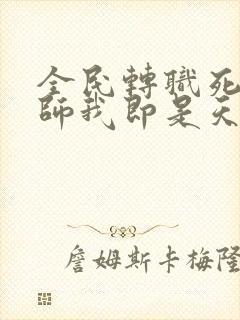 全民轉職死
師我即是天
詹姆斯卡梅隆